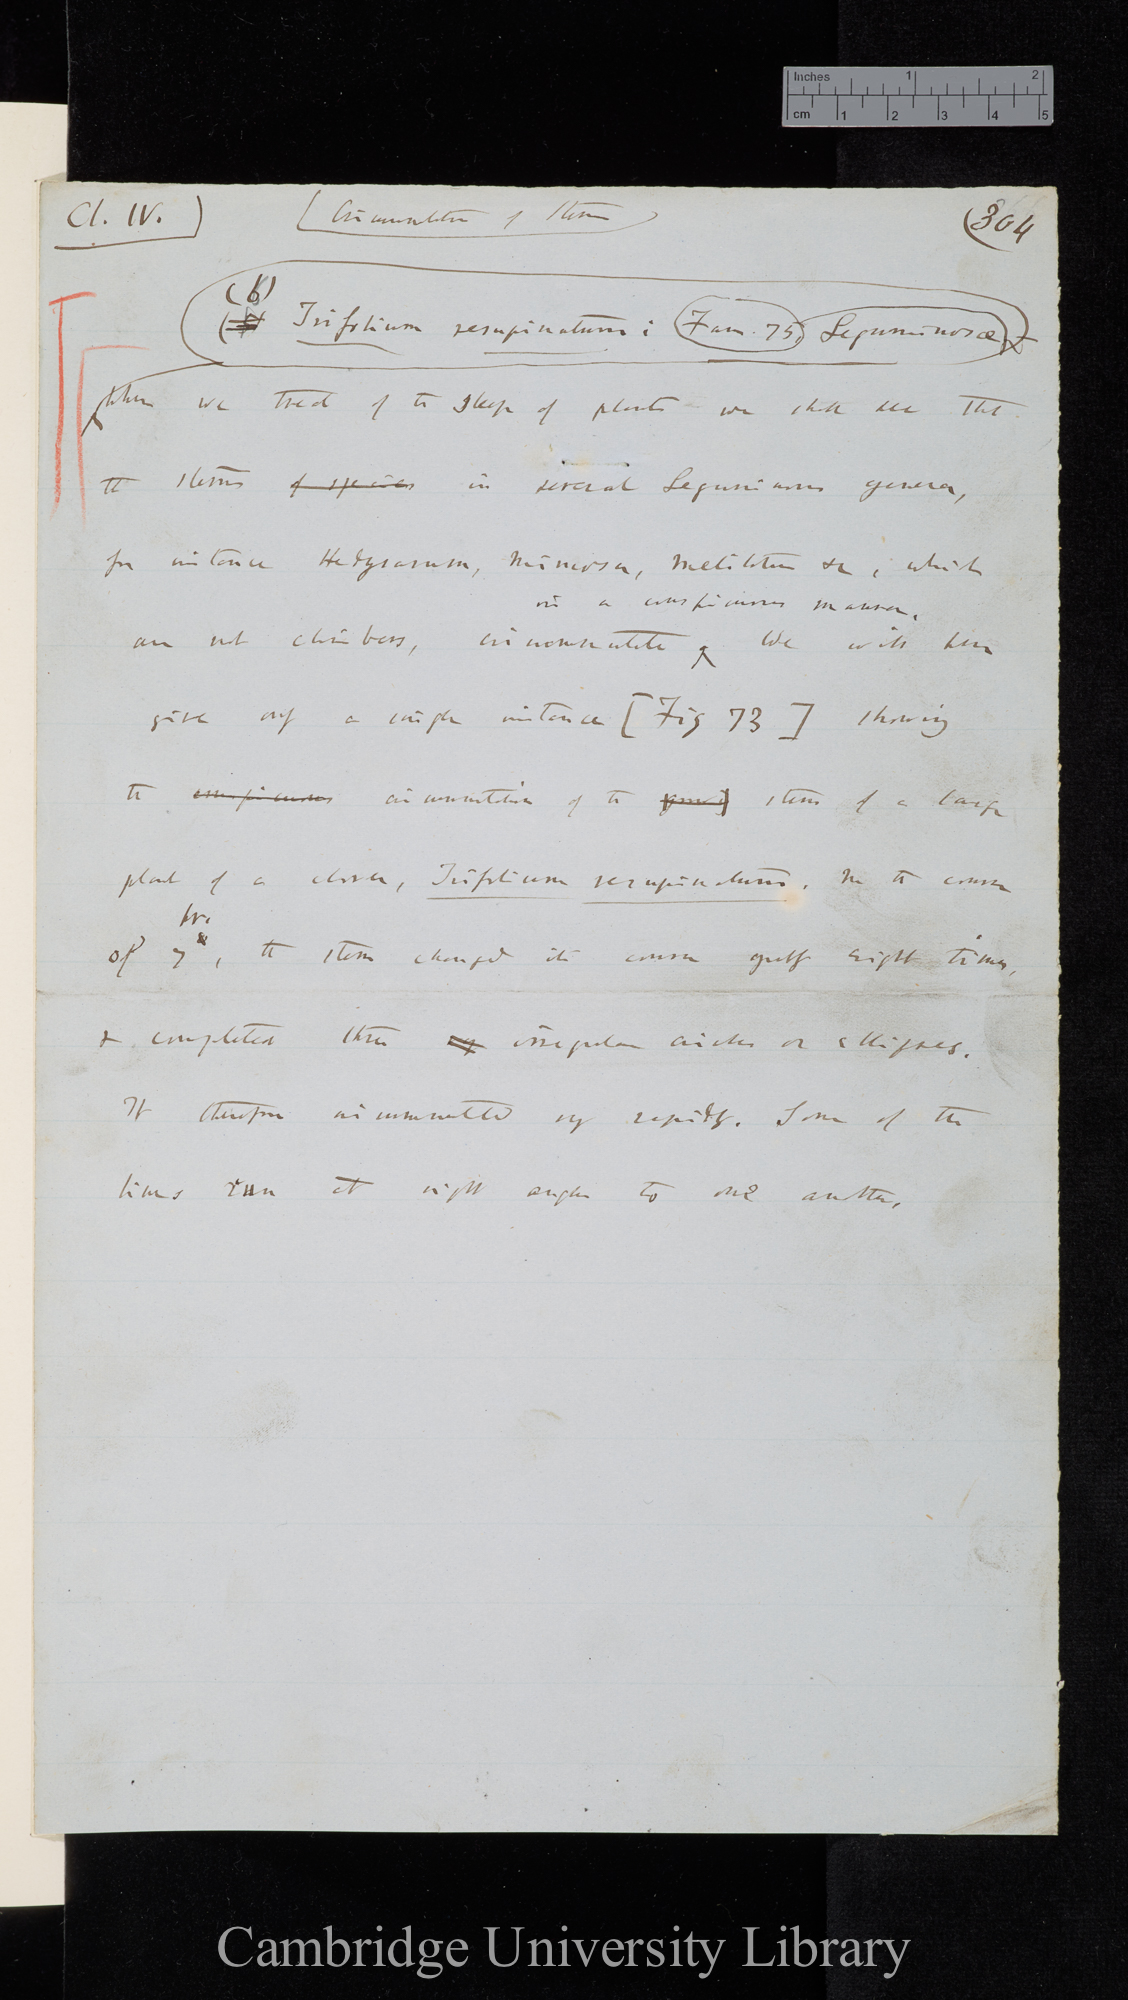 Inches 1 2
cm 1 2 3 4 5
Ch. IV.) [Circumnutation of Stems (304
(6)
Trifolium resupinatum: Fam. 75, Leguminosæ
When we treat of the sleep of plants we shall see that
the stems of species in several Leguminous genera,
for instance Hedysarum, Mimosa, Melilotus &c, which
in a conspicuous manner.
are not climbers, circumnutate We will here
give only a single instance [Fig 73] showing
the conspicuous circumnutation of the stem of a large
plant of a clover, Trifolium resupinatum. In the course
hrs
of 7, the stem changed its course greatly eight times,
& completed three irregular circles or ellipses.
It therefore circumnutated rapidly. Some of the
lines run at right angles to one another.
Cambridge University Library